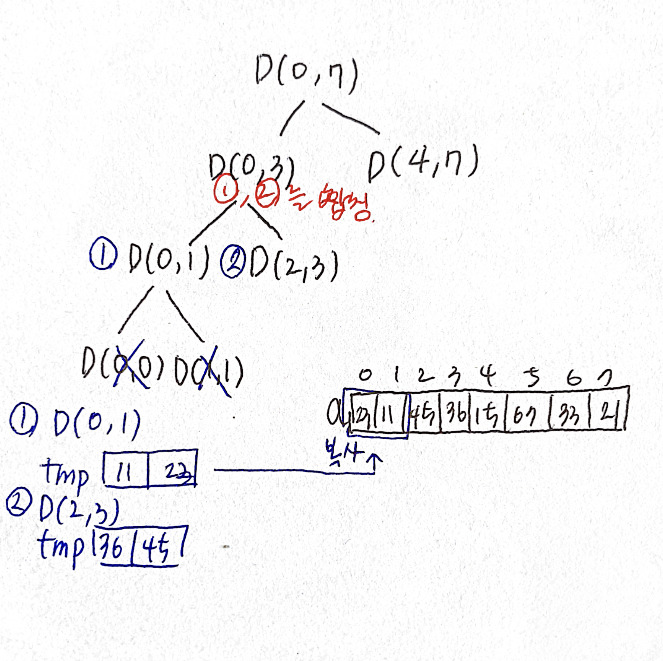 D(0,7)
D(0,3) D(4,7)
①,②는
① D(0,1) ② D(2,3)
D(0,0) D(1,1)
0 1 2 3 4 5 6 7
a 23 11 45 36 15 67 33 21
복사
① D(0,1)
tmp 11 23
② D(2,3)
tmp 36 45